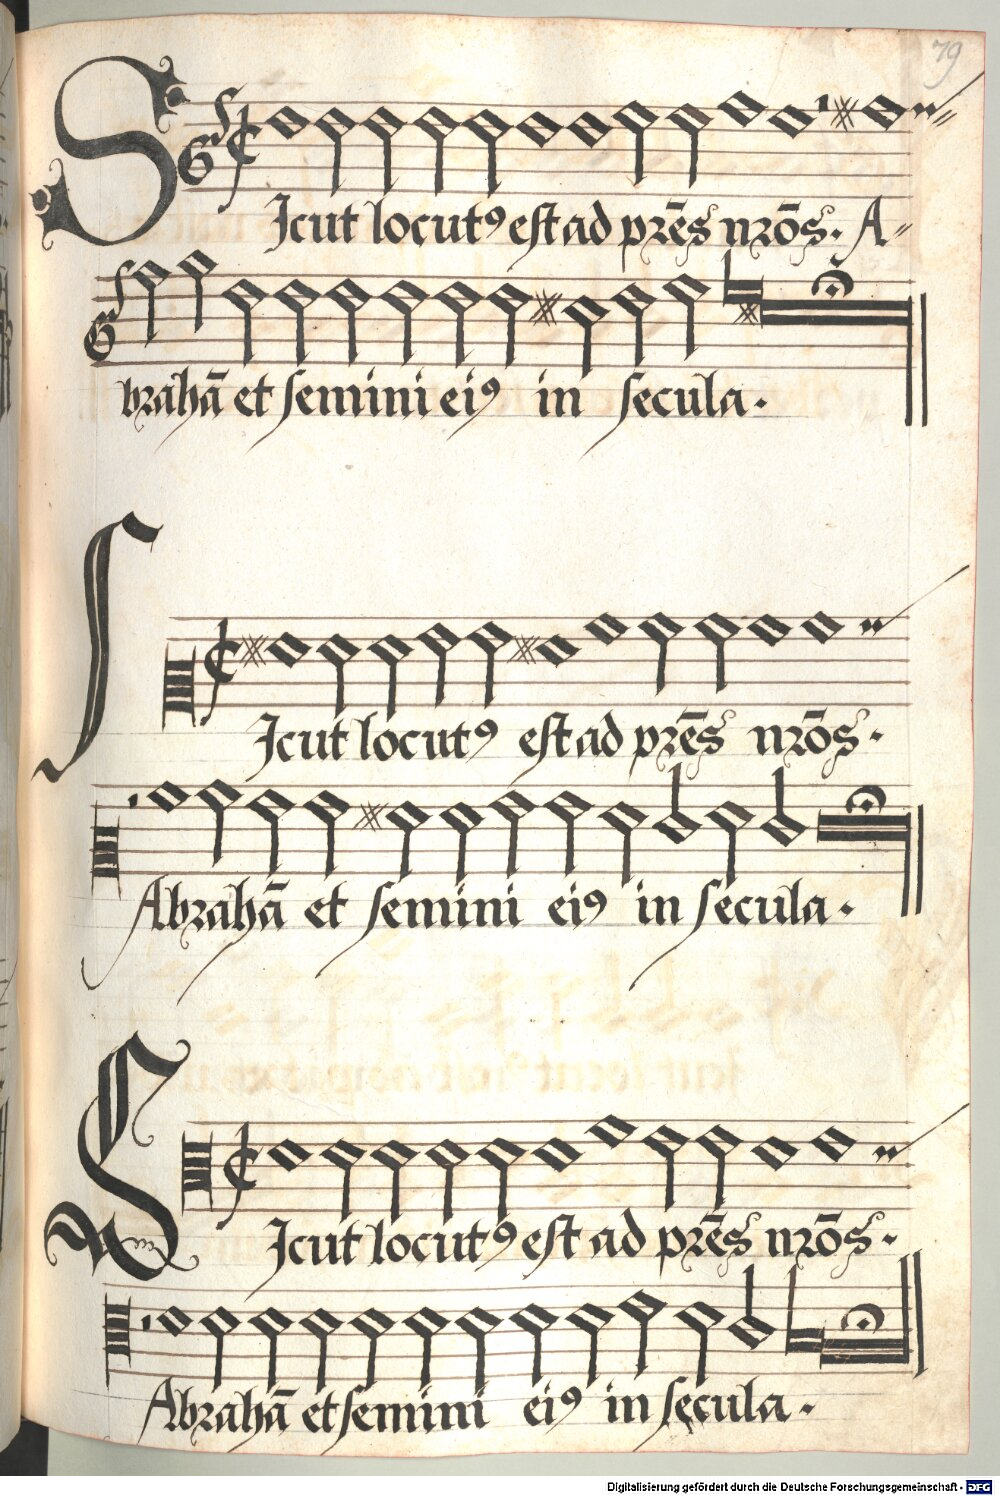 79
SIcut locutꝰ est ad pr̄es nr̄os. A-
brahā et semini eiꝰ in secula.
SIcut locutꝰ est ad pr̄es nr̄os.
Abrahā et semini eiꝰ in secula.
SIcut locutꝰ est ad pr̄es nr̄os.
Abrahā et semini eiꝰ in secula.
Digitalisierung gefördert durch die Deutsche Forschungsgemeinschaft - DFG